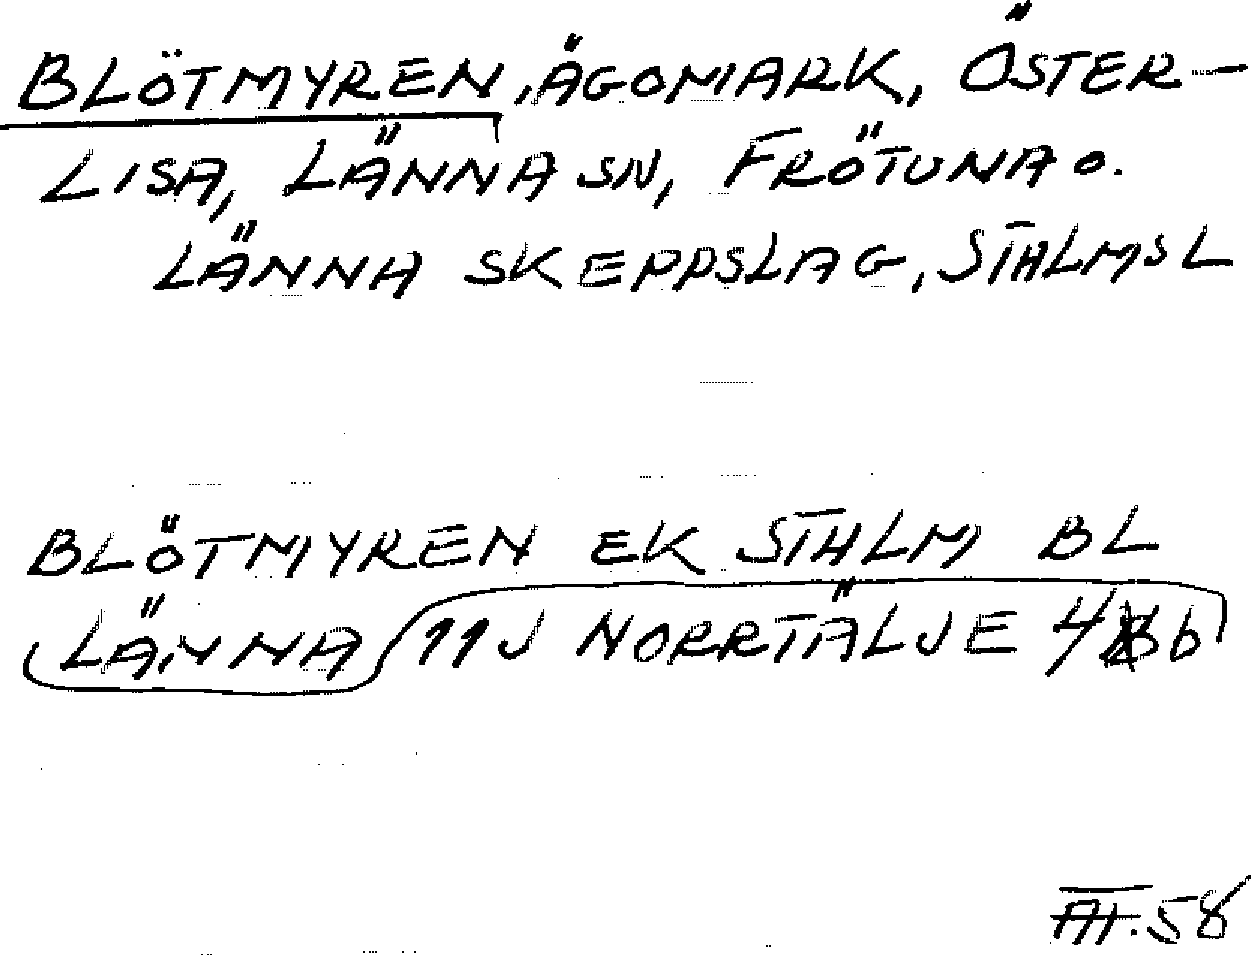 BLÖTMYREN, ÄGOMARK, ÖSTER-
LISA, LÄNNA SN, FRÖTUNA O.
LÄNNA SKEPPSLAG, STHLMS L
BLÖTMYREN EK STHLM BL
LÄNNA 11J NORRTÄLJE 4 b
58